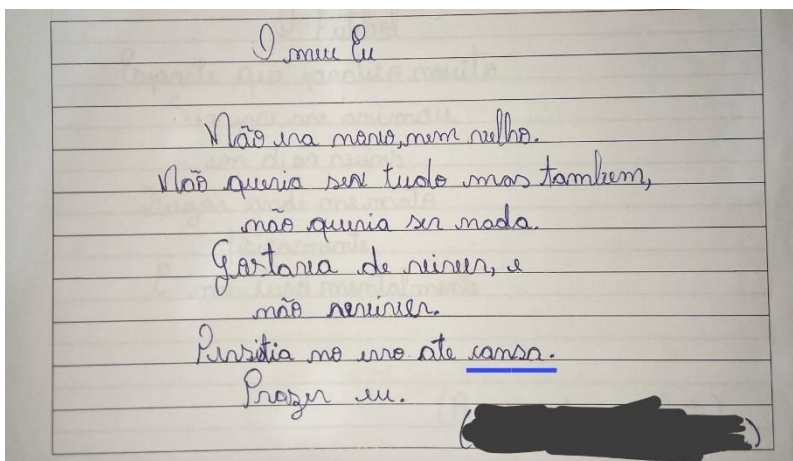 O meu Eu
Não era novo, nem velho.
Não queria ser tudo mas tambem,
não queria ser nada.
Gostava de viver, e
não reviver.
Persistia no erro ate cansa.
Prazer eu.